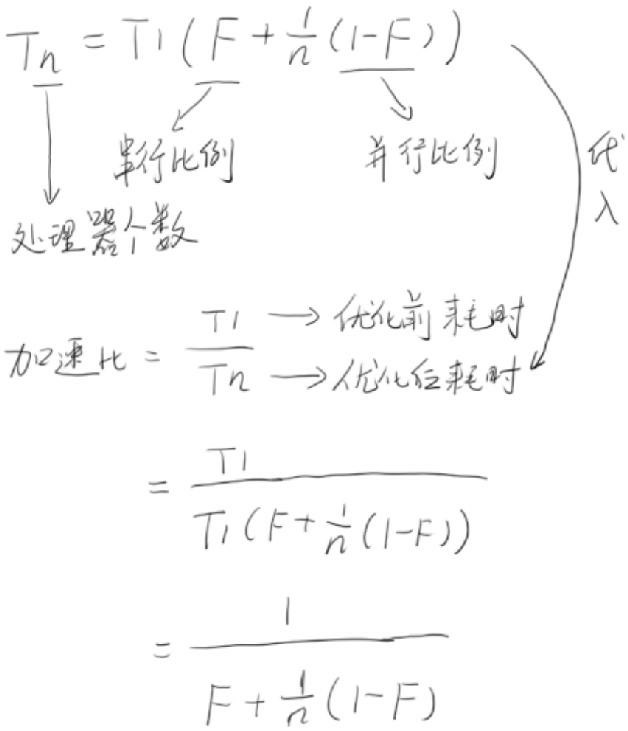 Tn = T1 ( F + 1/n (1-F) )
串行比例 并行比例
代入
处理器个数
加速比 = T1 → 优化前耗时
Tn → 优化后耗时
= T1
T1 ( F + 1/n (1-F) )
= 1
F + 1/n (1-F)